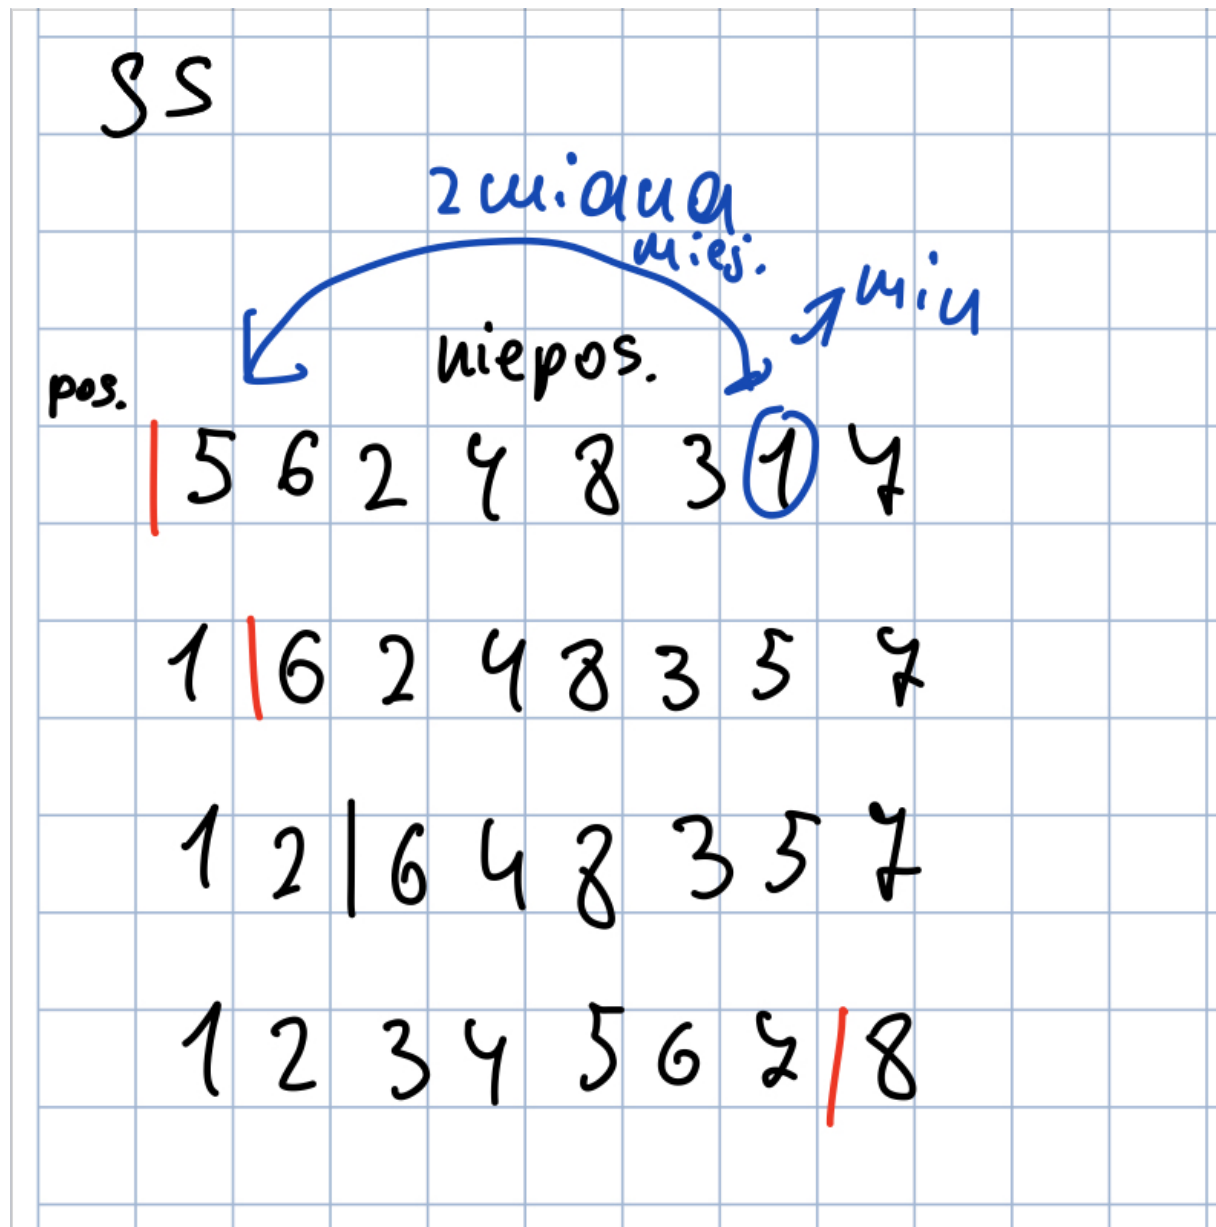 SS
zmiana
miejs.
min
niepos.
pos.
| 5 6 2 4 8 3 1 7
1 | 6 2 4 8 3 5 7
1 2 | 6 4 8 3 5 7
1 2 3 4 5 6 7 | 8